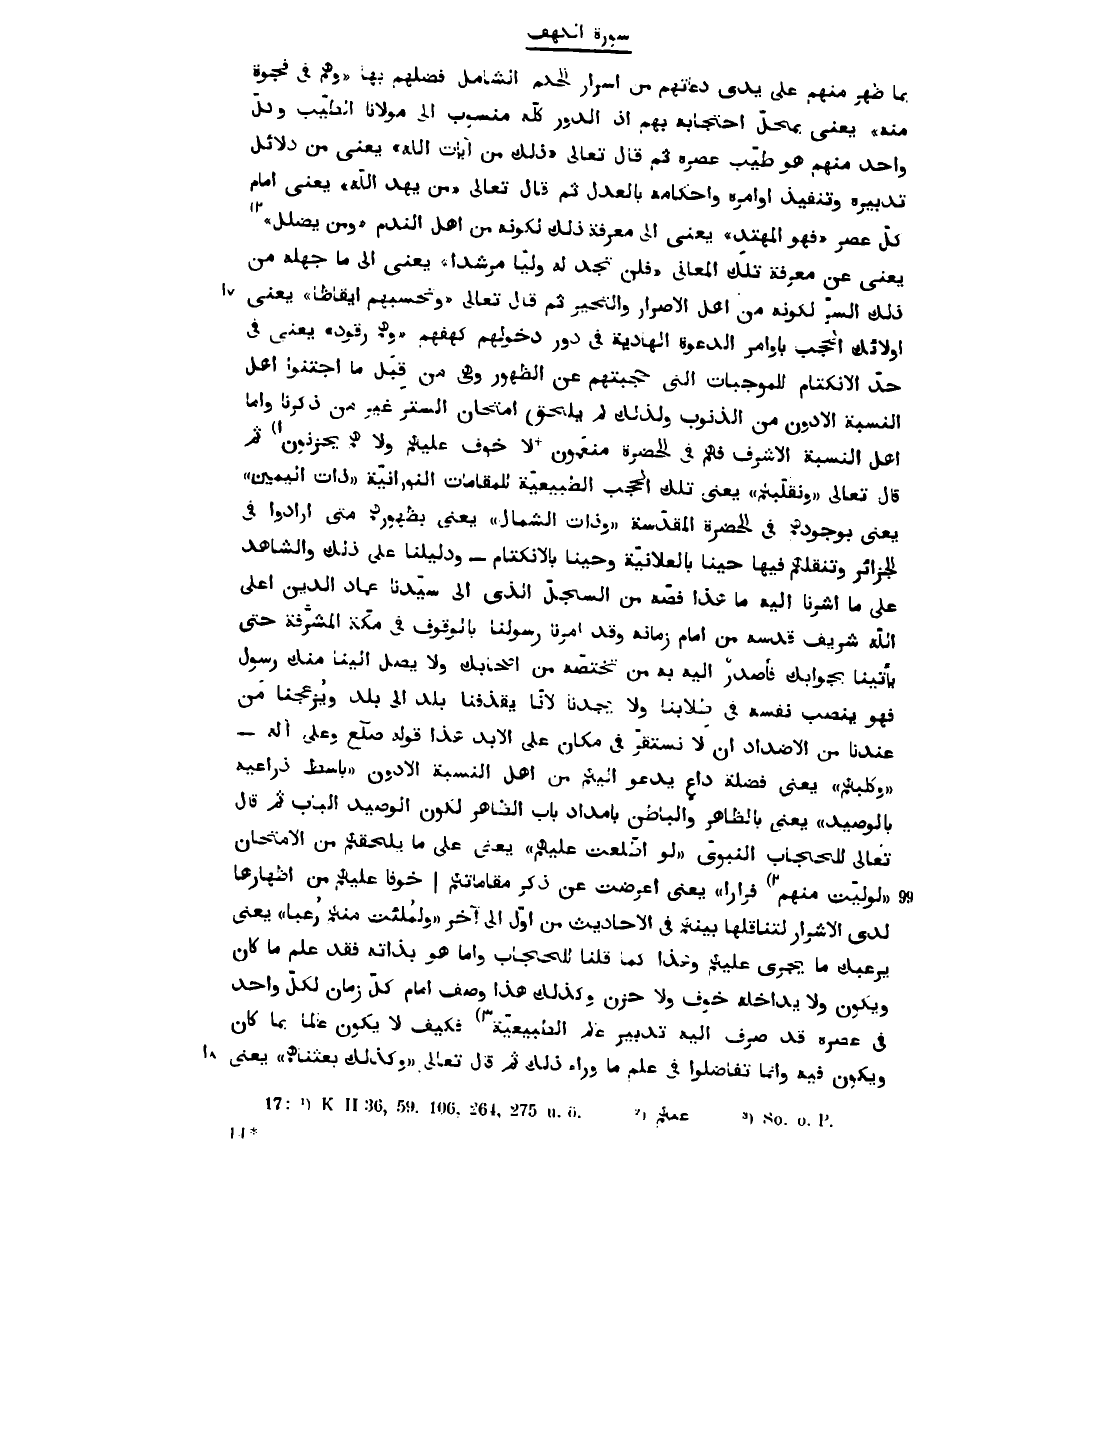 سورة الكهف
بما ظهر منهم على يدى دعاتهم من اسرار الحكم الشامل فضلهم بها «وهم فى فجوة
منه» يعنى بمحلّ احتجابه بهم اذ الدور كلّه منسوب الى مولانا الطيّب وكلّ
واحد منهم هو طيّب عصره ثم قال تعالى «ذلك من آيات الله» يعنى من دلائل
تدبيره وتنفيذ اوامره واحكامه بالعدل ثم قال تعالى «من يهد اللّه» يعنى امام
كلّ عصر «فهو المهتدِ» يعنى الى معرفة ذلك لكونه من اهل الندم «ومن يضلل»١٢)
يعنى عن معرفة تلك المعانى «فلن تجد له وليّا مرشدا» يعنى الى ما جهله من
ذلك السرّ لكونه من اهل الاصرار والتحير ثم قال تعالى «وتحسبهم ايقاظا» يعنى ١٧
اولائك الحجب باوامر الدعوة الهادية فى دور دخولهم كهفهم «وهم رقود» يعنى فى
حدّ الانكتام للموجبات التى حجبتهم عن الظهور وهى من قِبَل ما اجتنوا اهل
النسبة الادون من الذنوب ولذلك لم يلحق امتحان الستر غير من ذكرنا واما
اهل النسبة الاشرف فهم فى الحضرة منعّمون +لا خوف عليهم ولا هم يحزنون١) ثم
قال تعالى «ونقلّبهم» يعنى تلك الحجب الطبيعيّة للمقامات النورانيّة «ذات اليمين»
يعنى بوجودهم فى الحضرة المقدّسة «وذات الشمال» يعنى بظهورهم متى ارادوا فى
الجزائر وتنقلهم فيها حينا بالعلانيّة وحينا بالانكتام — ودليلنا على ذلك والشاهد
على ما اشرنا اليه ما هذا فصّه من السجلّ الذى الى سيّدنا عماد الدين اعلى
اللّه شريف قدسه من امام زمانه وقد امرنا رسولنا بالوقوف فى مكّة المشرّفة حتى
يأتينا بجوابك فأصدرْ اليه به من تختصّه من اصحابك ولا يصل الينا منك رسول
فهو ينصب نفسه فى طِلابنا ولا يجدنا لانّا يقذفنا بلد الى بلد ويُزعجنا مَن
عندنا من الاضداد ان لا نستقرّ فى مكان على الابد هذا قوله صلّع وعلى آله —
«وكلبهم» يعنى فضلة داعٍ يدعو اليهم من اهل النسبة الادون «باسط ذراعيه
بالوصيد» يعنى بالظاهر والباطن بامداد باب الظاهر لكون الوصيد الباب ثم قال
تعالى للحجاب النبوىّ «لو اطّلعت عليهم» يعنى على ما يلحقهم من الامتحان
99 «لولّيت منهم٢) فرارا» يعنى اعرضت عن ذكر مقاماتهم | خوفا عليهم من اظهارها
لدى الاشرار لتناقلها بينهم فى الاحاديث من اوّل الى آخر «ولمُلئت منهم رُعبا» يعنى
يرعبك ما يجرى عليهم وهذا كما قلنا للحجاب واما هو بذاته فقد علم ما كان
ويكون ولا يداخله خوف ولا حزن وكذلك هذا وصف امام كلّ زمان لكلّ واحد
فى عصره قد صرف اليه تدبير عالم الطبيعيّة٣) فكيف لا يكون عالما بما كان
ويكون فيه وانما تفاضلوا فى علم ما وراء ذلك ثم قال تعالى «وكذلك بعثناهم» يعنى ١٨
17: ¹) K II 36, 59. 106, 264, 275 u. ö. ²) عنهم ³) So. o. P.
14*